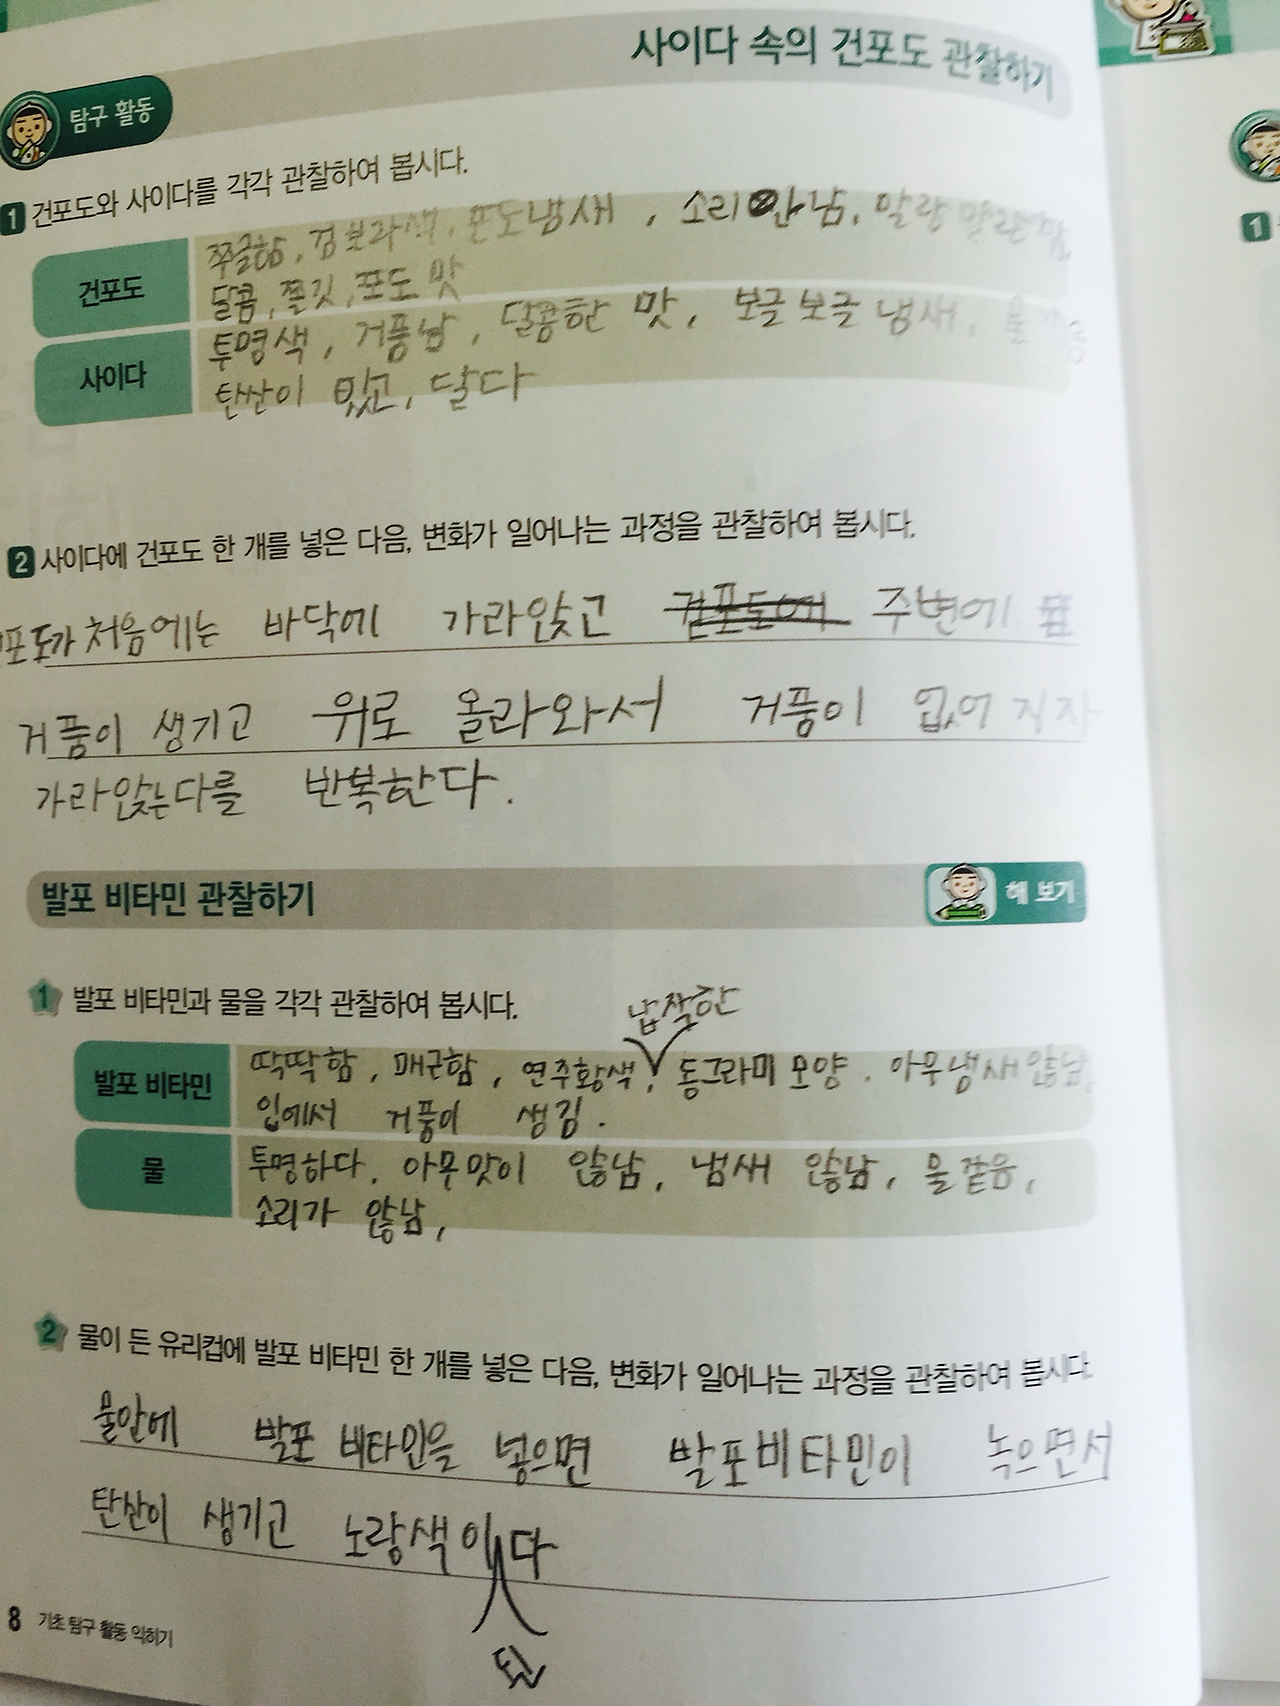 사이다 속의 건포도 관찰하기
탐구 활동
1 건포도와 사이다를 각각 관찰하여 봅시다.
건포도
쭈글함, 검보라색, 포도냄새, 소리안남, 말랑말랑함,
달콤, 쫄깃, 포도 맛
사이다
투명색, 거품남, 달콩한 맛, 보글보글 냄새,
탄싼이 있고, 달다
2 사이다에 건포도 한 개를 넣은 다음, 변화가 일어나는 과정을 관찰하여 봅시다.
포도가 처음에는 바닥에 가라앉고 주변에
거품이 생기고 위로 올라와서 거품이 없어지자
가라앉는다를 반복한다.
발포 비타민 관찰하기
해 보기
1 발포 비타민과 물을 각각 관찰하여 봅시다.
납작한
발포 비타민
딱딱함, 매근함, 연주황색, 동그라미 모양. 아무냄새않남,
입에서 거품이 생김.
물
투명하다. 아무맛이 않남, 냄새 않남, 물같음,
소리가 않남,
2 물이 든 유리컵에 발포 비타민 한 개를 넣은 다음, 변화가 일어나는 과정을 관찰하여 봅시다.
물안에 발포 비타민을 넣으면 발포비타민이 녹으면서
탄산이 생기고 노랑색이다
된
8 기초 탐구 활동 익히기
1